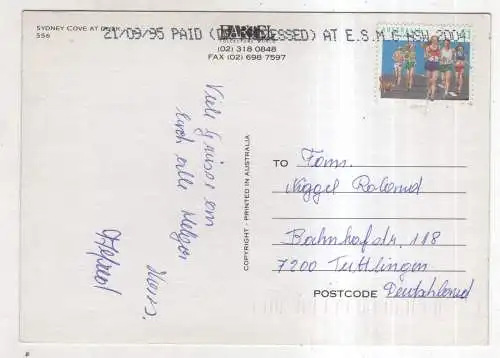 SYDNEY COVE AT DUSK
556
21/09/95 PAID ( ESSED) AT E.S.M.C NSW 2004
(02) 318 0848
FAX (02) 698 7597
Viele Grüsse an
euch alle
COPYRIGHT · PRINTED IN AUSTRALIA
TO Fam.
Niggel Roland
Bahnhofstr. 118
7200 Tuttlingen
POSTCODE Deutschland